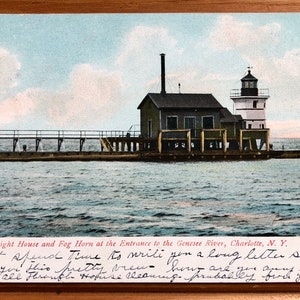 ight House and Fog Horn at the Entrance to the Genesee River, Charlotte, N. Y.
spend time to write you a long letter s
you this pretty view how are you any
House Cleaning probably